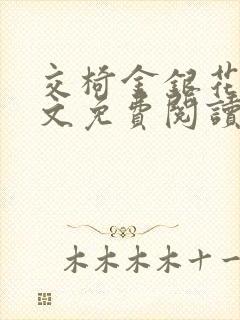 交椅金銀花
文免費閱讀
木木木木十一